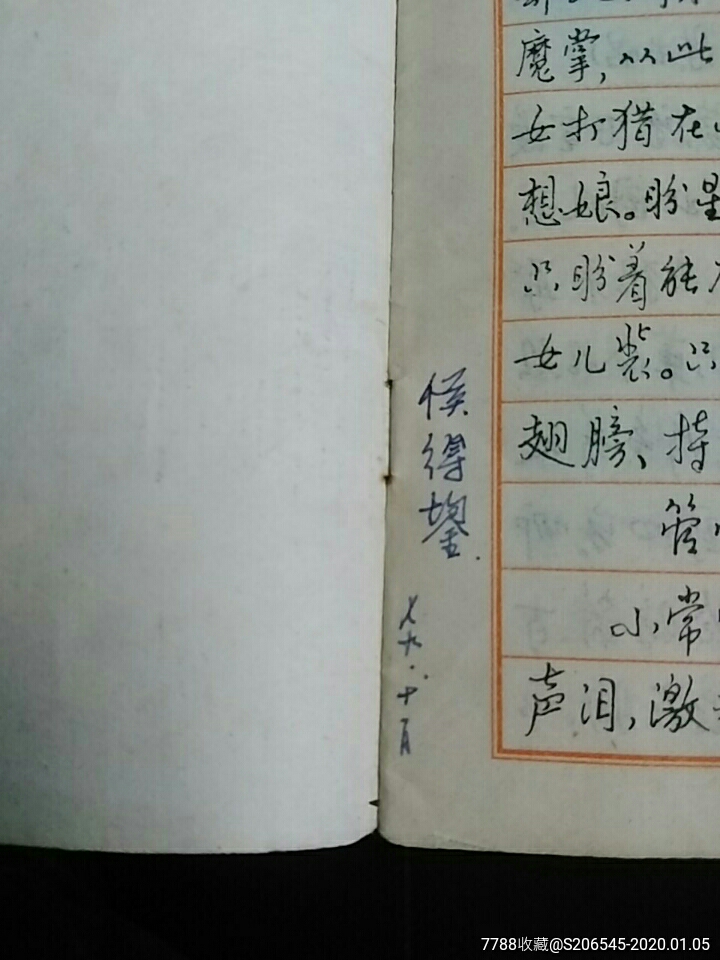 魔掌,从此
女打猎在
想娘。盼星
只盼着能
女儿装。只
翅膀、持
管
小常
声泪,激
侯得鋆.
七九.十月
7788收藏@S206545-2020.01.05